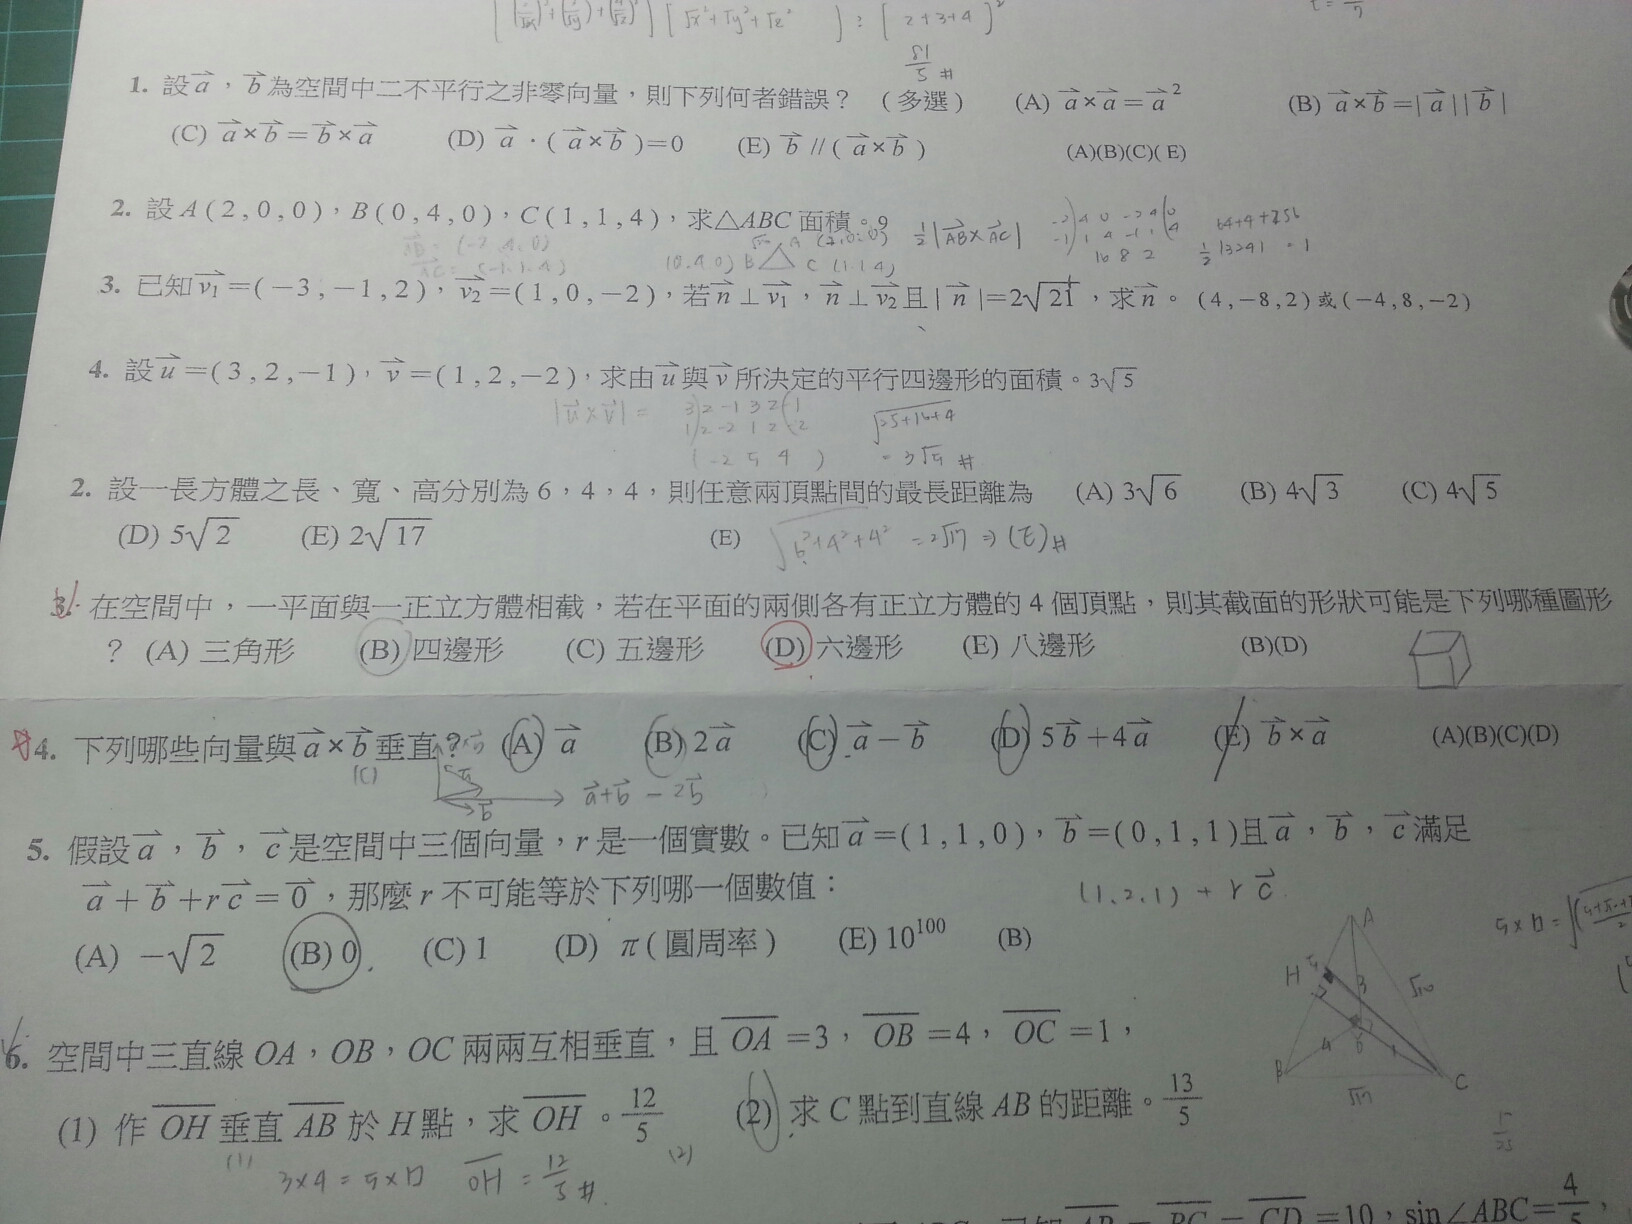 [ 2+3+4 ]²
81/5 #
1. 設a⃗，b⃗為空間中二不平行之非零向量，則下列何者錯誤？（多選） (A) a⃗×a⃗=a⃗² (B) a⃗×b⃗=|a⃗||b⃗|
(C) a⃗×b⃗=b⃗×a⃗ (D) a⃗·(a⃗×b⃗)=0 (E) b⃗//(a⃗×b⃗) (A)(B)(C)(E)
2. 設A(2,0,0)，B(0,4,0)，C(1,1,4)，求△ABC面積。9 ½|AB⃗×AC⃗|
AB = (-2,4,0)
AC = (-1,1,4)
(0,4,0) B A (2,0,0) C (1,1,4)
16 8 2
3. 已知v₁⃗=(−3,−1,2)，v₂⃗=(1,0,−2)，若n⃗⊥v₁⃗，n⃗⊥v₂⃗且|n⃗|=2√21，求n⃗。 (4,−8,2)或(−4,8,−2)
4. 設u⃗=(3,2,−1)，v⃗=(1,2,−2)，求由u⃗與v⃗所決定的平行四邊形的面積。3√5
|u⃗×v⃗| = 3 2 -1 3 2 -1 √25+16+4
1 2 -2 1 2 -2
(-2 5 4) = 3√5 #
2. 設一長方體之長、寬、高分別為6，4，4，則任意兩頂點間的最長距離為 (A) 3√6 (B) 4√3 (C) 4√5
(D) 5√2 (E) 2√17 (E) √6²+4²+4² = 2√17 ⇒ (E) #
3. 在空間中，一平面與一正立方體相截，若在平面的兩側各有正立方體的4個頂點，則其截面的形狀可能是下列哪種圖形
？(A) 三角形 (B) 四邊形 (C) 五邊形 (D) 六邊形 (E) 八邊形 (B)(D)
4. 下列哪些向量與a⃗×b⃗垂直？ (A) a⃗ (B) 2a⃗ (C) a⃗−b⃗ (D) 5b⃗+4a⃗ (E) b⃗×a⃗ (A)(B)(C)(D)
(C) b⃗ a⃗+b⃗ - 2b⃗
5. 假設a⃗，b⃗，c⃗是空間中三個向量，r是一個實數。已知a⃗=(1,1,0)，b⃗=(0,1,1)且a⃗，b⃗，c⃗滿足
a⃗+b⃗+rc⃗=0⃗，那麼r不可能等於下列哪一個數值： (1,2,1) + r c⃗
(A) −√2 (B) 0 (C) 1 (D) π(圓周率) (E) 10¹⁰⁰ (B)
A H 5 3 √10 4 1 B C √17
6. 空間中三直線OA，OB，OC兩兩互相垂直，且OA=3，OB=4，OC=1，
(1) 作OH垂直AB於H點，求OH。12/5 (2) 求C點到直線AB的距離。13/5
(1) 3×4 = 5×□ OH = 12/5 # (2)
BC = CD =10，sin∠ABC=4/5，